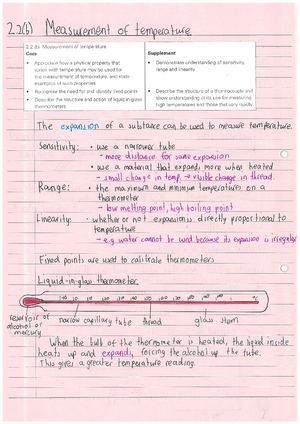 2.2(b) Measurement of temperature
2.2 (b) Measurement of temperature
Core
Supplement
• Appreciate how a physical property that varies with temperature may be used for the measurement of temperature, and state examples of such properties
• Demonstrate understanding of sensitivity, range and linearity
• Recognise the need for and identify fixed points
• Describe the structure and action of liquid-in-glass thermometers
• Describe the structure of a thermocouple and show understanding of its use for measuring high temperatures and those that vary rapidly
The expansion of a substance can be used to measure temperature.
Sensitivity: • use a narrower tube
- more distance for same expansion
• use a material that expands more when heated
- small change in temp. → visible change in thread.
Range: • the maximum and minimum temperatures on a thermometer
- low melting point, high boiling point
Linearity: • whether or not expansion is directly proportional to temperature
- e.g. water cannot be used because its expansion is irregular
Fixed points are used to calibrate thermometers
Liquid-in-glass thermometer
reservoir of alcohol or mercury
narrow capillary tube
thread
glass stem
When the bulb of the thermometer is heated, the liquid inside
heats up and expands, forcing the alcohol up the tube.
This gives a greater temperature reading.